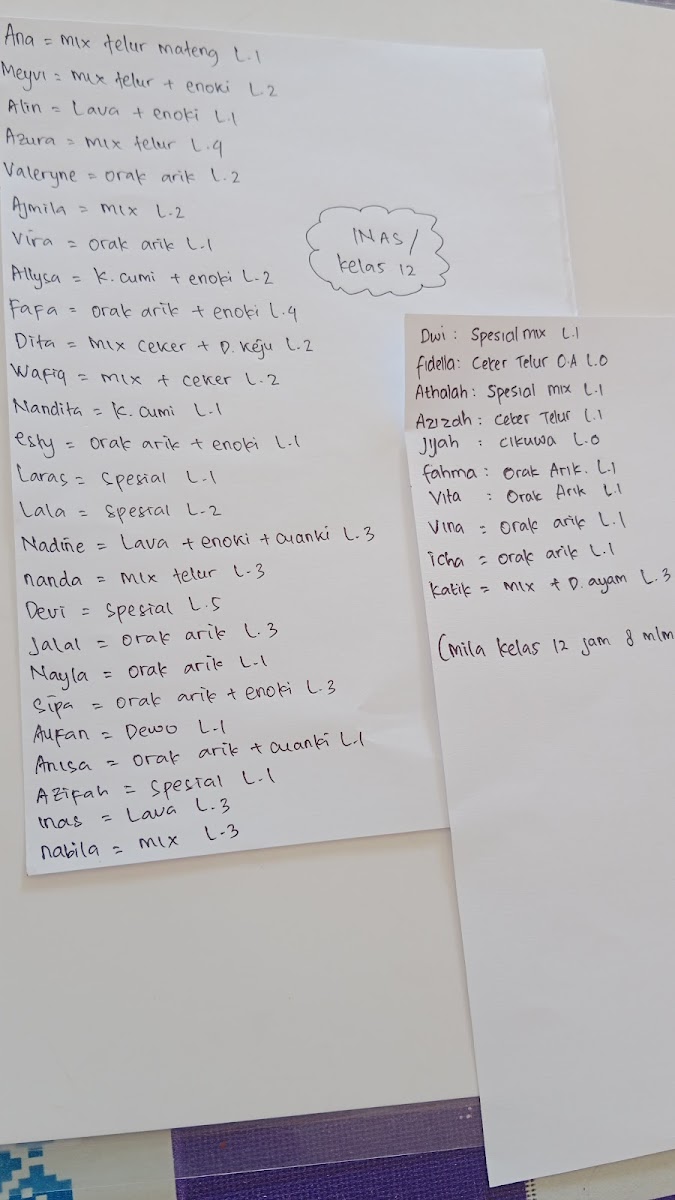 Ana = mix telur mateng L.1
Meyvi = mix telur + enoki L.2
Alin = Lava + enoki L.1
Azura = mix telur L.4
Valeryne = orak arik L.2
Ajmila = mix L.2
Vira = orak arik L.1
Allysa = K. cumi + enoki L.2
Fafa = orak arik + enoki L.4
Dita = mix ceker + D. keju L.2
Wafiq = mix + ceker L.2
Nandita = K. cumi L.1
esty = orak arik + enoki L.1
Laras = Spesial L.1
Lala = Spesial L.2
Nadine = Lava + enoki + cuanki L.3
nanda = mix telur L.3
Devi = spesial L.5
Jalal = orak arik L.3
Nayla = orak arik L.1
Sipa = orak arik + enoki L.3
Aufan = Dewo L.1
Anisa = orak arik + cuanki L.1
Azifah = Spesial L.1
inas = Lava L.3
nabila = mix L.3
INAS /
kelas 12
Dwi : Spesial mix L.1
fidella: Ceker Telur O.A L.0
Athalah: Spesial mix L.1
Azizah: Ceker Telur L.1
Jyah : Cikuwa L.0
fahma : Orak Arik. L.1
Vita : Orak Arik L.1
Vina = orak arik L.1
icha = orak arik L.1
Katik = mix + D. ayam L.3
(mila kelas 12 jam 8 mlm